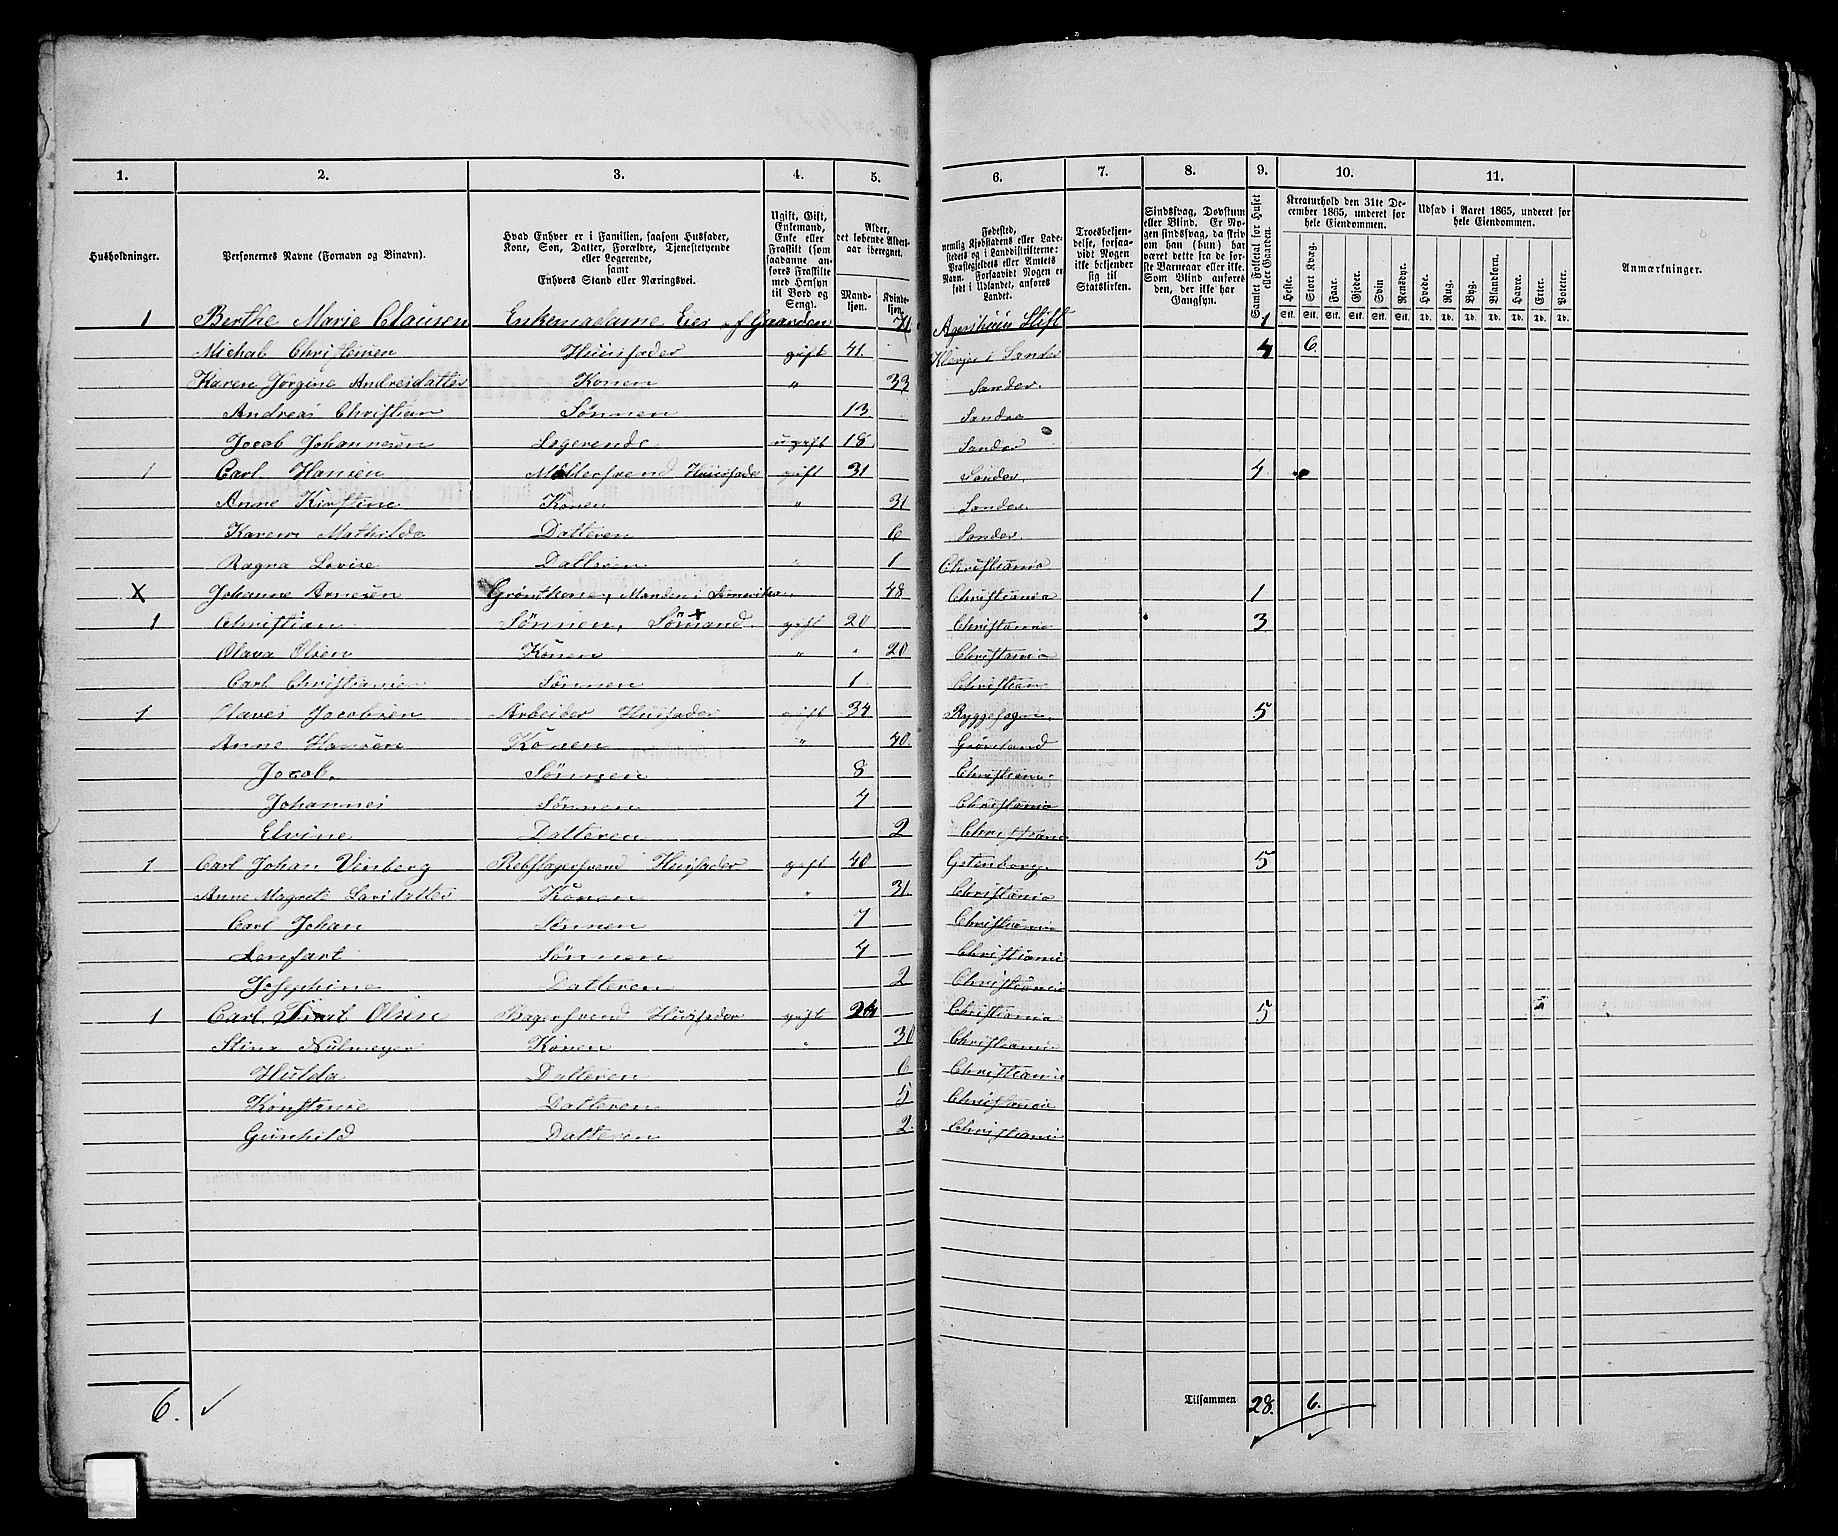 1. 2. 3. 4. 5. 6. 7. 8. 9. 10. 11.
Husholdninger. Personernes Navne (Fornavn og Binavn). Hvad Enhver er i Familien, saasom Husfader, Kone, Søn, Datter, Forældre, Tjenestetyende eller Logerende, samt Enhvers Stand eller Næringsvei. Ugift, Gift, Enkemand, Enke eller Fraskilt (som saadanne anføres Fraskilte med Hensyn til Bord og Seng). Alder, det løbende Aldersaar iberegnet. Mandkjøn. Kvindekjøn. Fødested, nemlig Kjøbstadens eller Ladestedets og i Landdistrikterne: Præstegjeldets eller Amtets Navn. Forsaavidt Nogen er født i Udlandet, anføres Landet. Troesbekjendelse, forsaavidt Nogen ikke bekjender sig til Statskirken. Sindssvag, Døvstum eller Blind. Er Nogen sindssvag, da skrives om han (hun) har været dette fra de første Barneaar eller ikke. Som Blind anføres den, der ikke har Gangsyn. Samlet Folketal for Huset eller Gaarden. Kreaturhold den 31te December 1865, underet for hele Eiendommen. Heste. Stort Kvæg. Faar. Gjeder. Svin Rensdyr. Udsæd i Aaret 1865, underet for hele Eiendommen. Hvede. Rug. Byg. Blandkorn. Havre. Erter. Poteter. Anmærkninger.
Stk. Stk. Stk. Stk. Stk. Stk. Td. Td. Td. Td. Td. Td. Td.
1 Berthe Marie Clausen Enkemadame Eier af Gaarden 71 Agershuus Stift 1
Michal Christensen Huusfader gift 41. Sander 4 6.
Karen Jørgine Andreidatter Konen " 33 Sander.
Andreas Christian Sønnen 13 Sander
Jacob Johannesen Logerende ugift 18 Sander
1 Carl Hansen Møllersvend Huusfader gift 31 Sander. 4
Anne Kirstine Konen " 31 Sander.
Karen Mathilde Datteren 6 Sander.
Ragna Lovise Datteren 1 Christiania
X Johanne Arnesen Grønthone, Manden i Amerika. 48 Christiania 1
1 Christian Sønnen, Sømand. gift 20 Christiania 3
Olava Olsen Konen " 20 Christiania
Carl Christiansen Sønnen 1 Christian
1 Olaves Jacobsen Arbeider Huusfader gift 34 Ryggesogn. 5
Anne Hansen Konen " 40. Grønland
Jacob. Sønnen 8 Christiania
Johannes Sønnen 4 Christiania
Elvine Datteren 2 Christiania
1 Carl Johan Vinberg Rebslagersvend Huusfader gift 40 Gotenborg. 5
Anne Magrete Larsdatter Konen " 31. Christiania
Carl Johan Sønnen 7 Christiania
Lenfart Sønnen 4 Christiania
Josephine Datteren 2 Christiania
1 Carl Olsen Bagersvend Huusfader gift 24 Christiania 5
Stine Konen " 30 Christiania
Hulda Datteren 6 Christiania
Konstanse Datteren 5 Christiania
Gunhild Datteren 2. Christiani
6. ✓ Tilsammen 28. 6.